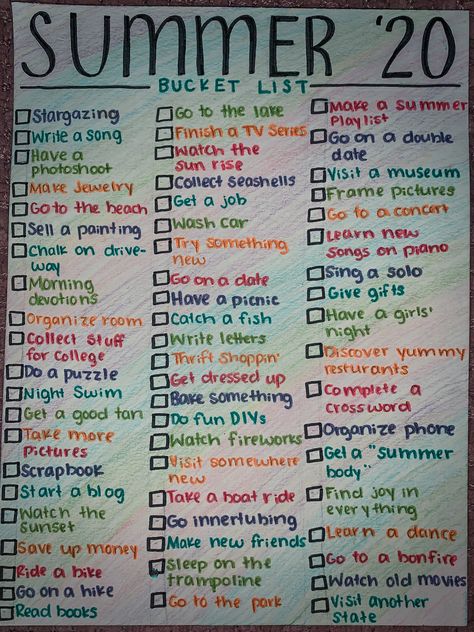 SUMMER '20
BUCKET LIST
Stargazing
Write a song
Have a
photoshoot
Make Jewelry
Go to the beach
Sell a painting
Chalk on drive-
way
Morning
devotions
Organize room
Collect stuff
for college
Do a puzzle
Night Swim
Get a good tan
Take more
Pictures
Scrapbook
Start a blog
Watch the
sunset
Save up money
Ride a bike
Go on a hike
Read books
Go to the lake
Finish a TV Series
Watch the
sun rise
Collect Seashells
Get a job
Wash car
Try something
new
Go on a date
Have a picnic
Catch a fish
Write letters
Thrift Shoppin'
Get dressed up
Bake something
Do fun DIYs
Watch fireworks
Visit somewhere
new
Take a boat ride
Go innertubing
Make new friends
Sleep on the
trampoline
Go to the park
Make a summer
Playlist
Go on a double
date
Visit a museum
Frame pictures
Go to a concert
Learn new
Songs on piano
Sing a solo
Give gifts
Have a girls'
night
Discover yummy
resturants
Complete a
crossword
Organize phone
Get a "summer
body"
Find joy in
everything
Learn a dance
Go to a bonfire
Watch old movies
Visit another
State